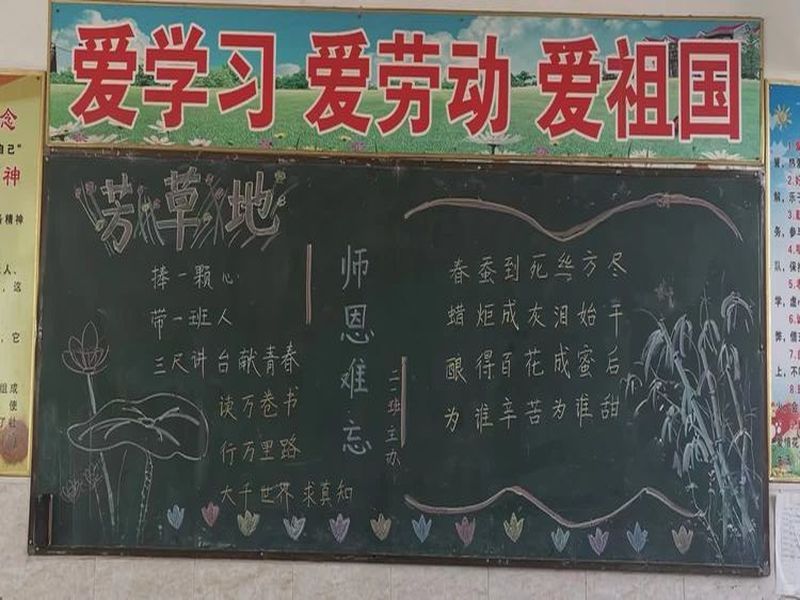 爱学习 爱劳动 爱祖国
芳草地
捧一颗心
带一班人
三尺讲台献青春
读万卷书
行万里路
大千世界求真知
师恩难忘
二二班主办
春蚕到死丝方尽
蜡炬成灰泪始干
酿得百花成蜜后
为谁辛苦为谁甜
念
自己"
神
精神
人、
这
它
组成
使